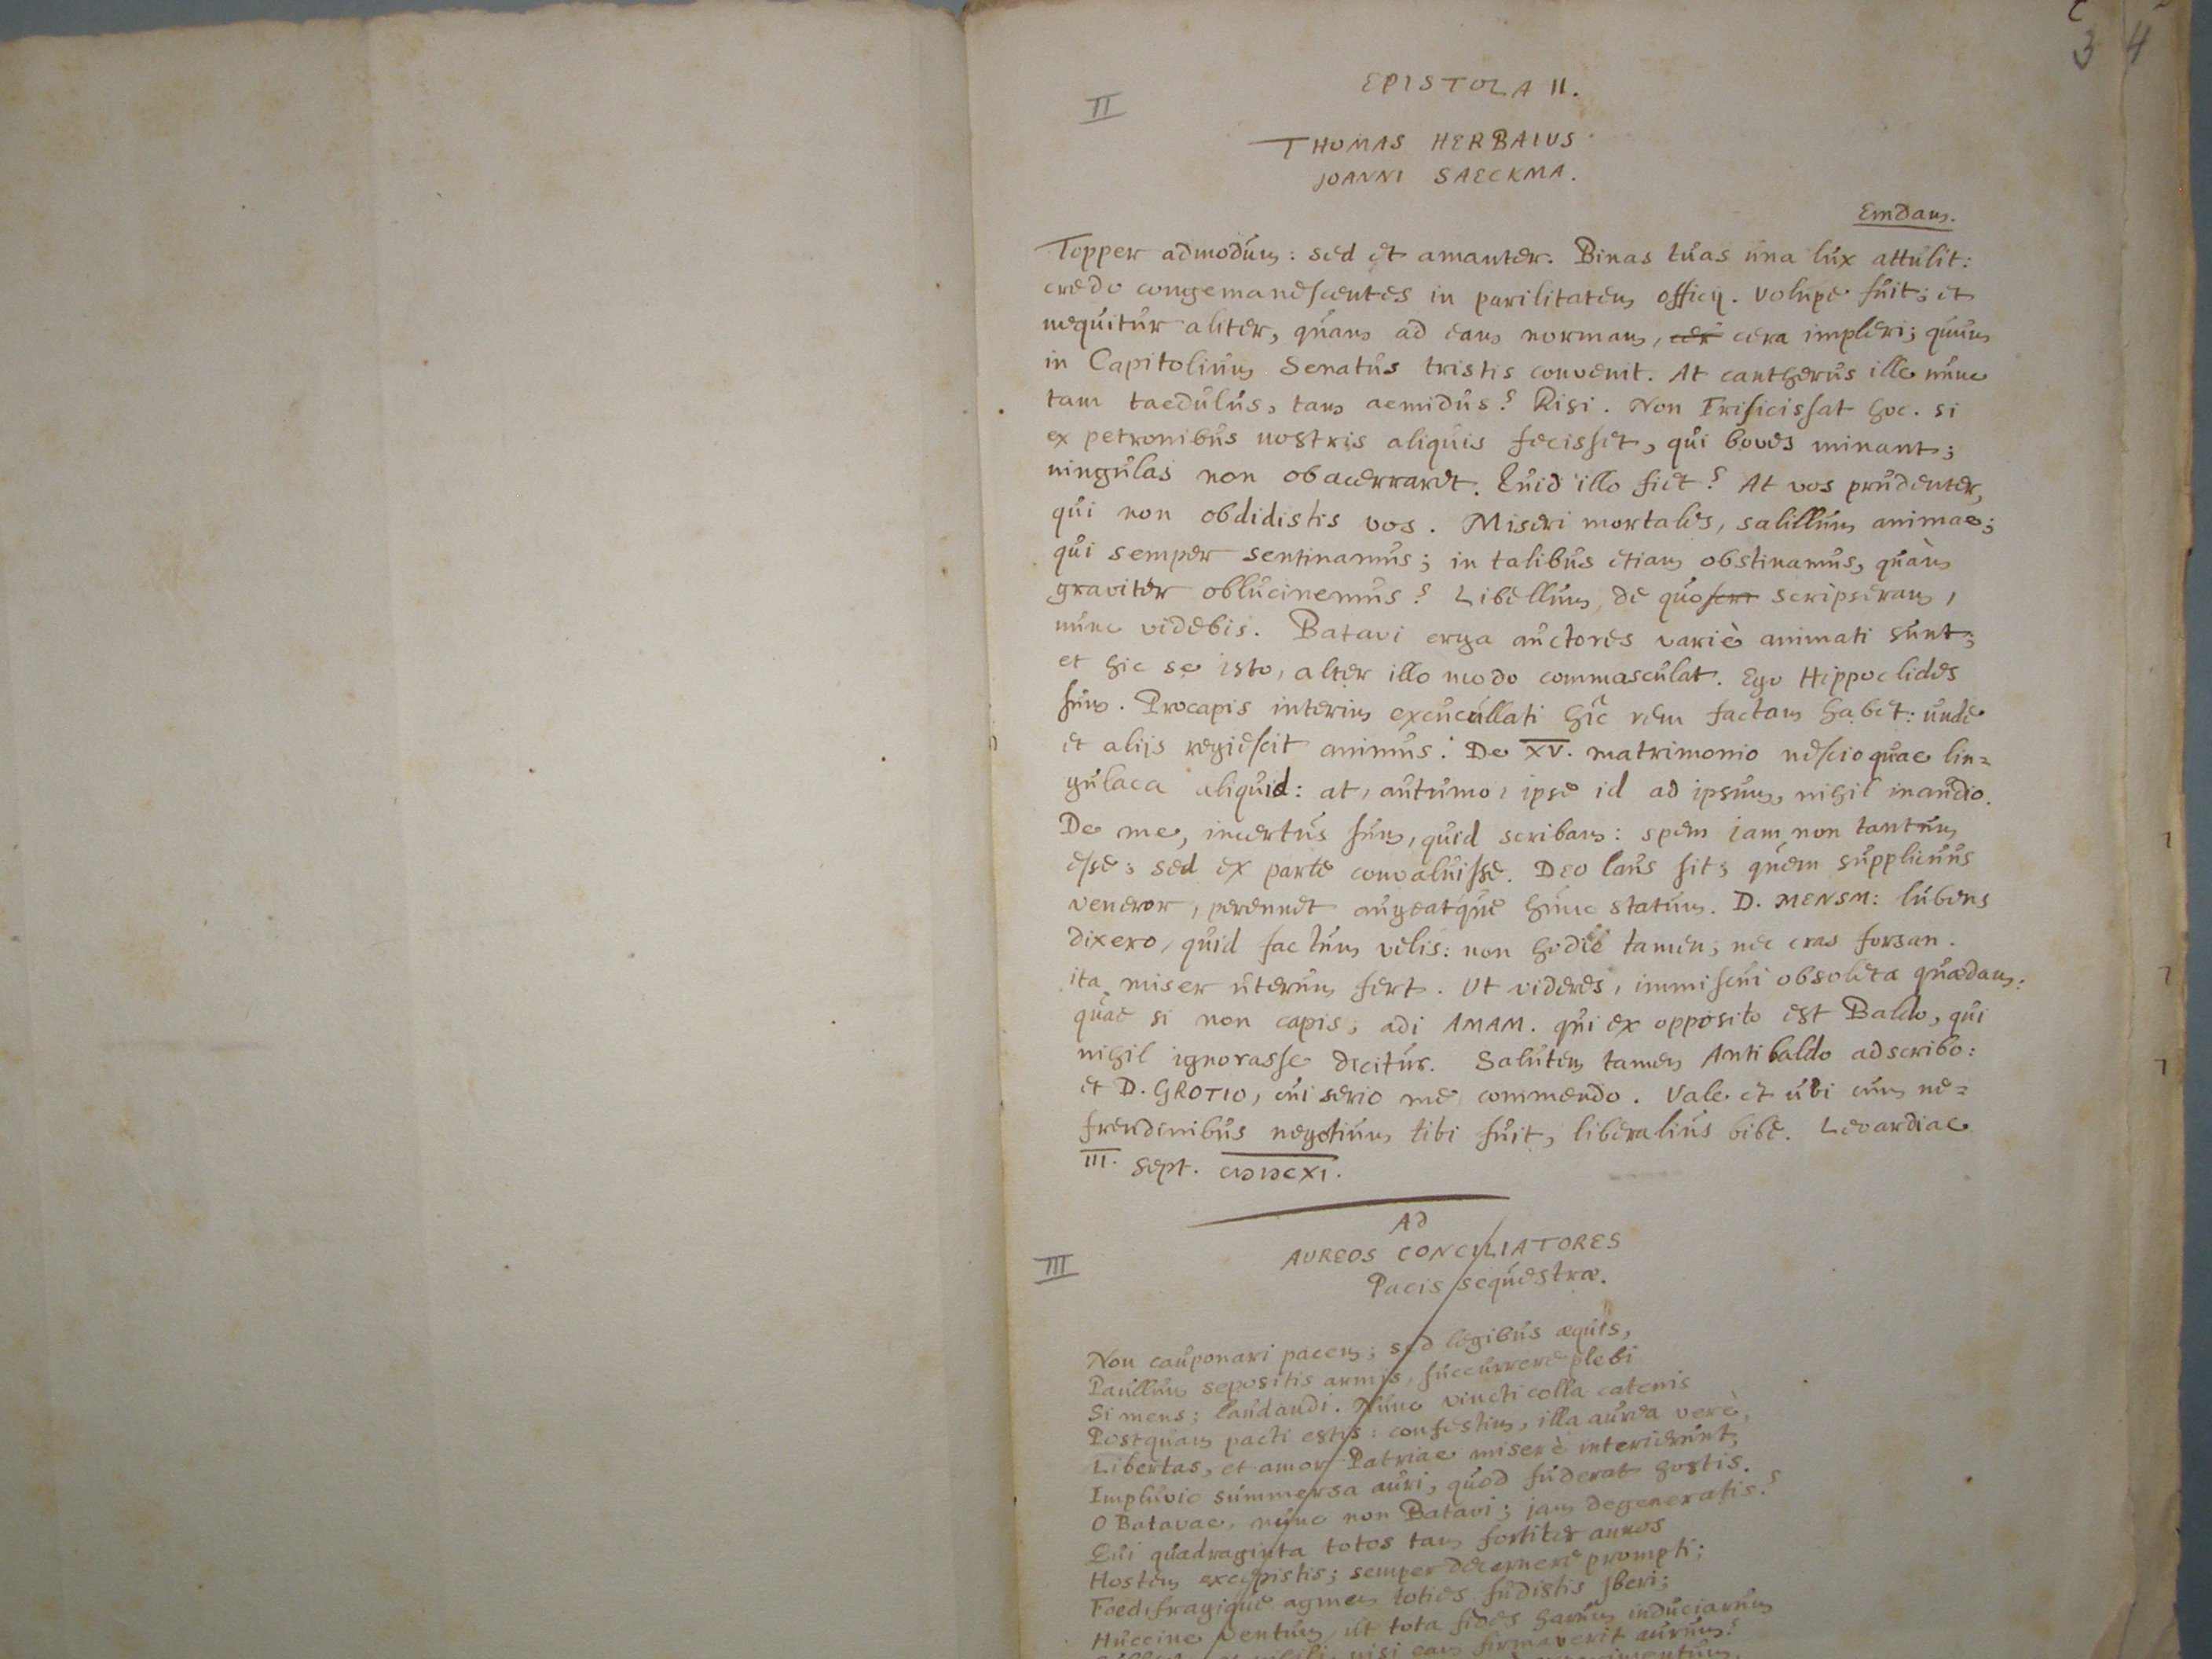 3 4
II
EPISTOLA II.
THOMAS HERBAIUS
JOANNI SAECKMA.
Emdam.
Topper admodúm: sed et amanter. Binas túas úna lúx attúlit:
credo congemanescentes in parilitatem officij. Volúpe fúit; et
nequitúr aliter, quàm ad eam normam, cera impleri; quúm
in Capitoliúm Senatús tristis convenit. At cantherús ille núnc
tam taedúlús, tam aemidús? Risi. Non Frisicissat hoc. si
ex petronibús nostris aliquis fecisset, qui boves minant;
ningúlas non obacerraret. Quid illo fiet? At vos prúdenter,
qúi non obdidistis vos. Miseri mortales, salillúm animae;
qúi semper sentinamús; in talibús etiam obstinamús, qúàm
graviter oblúcinemús? Libellúm, de qúo scripseram,
núnc videbis. Batavi erga aúctores variè animati súnt;
et hic se isto, alter illo modo commascúlat. Ego Hippoclides
súm. Procapis interim excúcúllati hîc rem factam habet: únde
et alijs regiescit animús. De XV. matrimonio nescio qúae lin=
gúlaca aliquid: at, aútúmo, ipse id ad ipsúm, nihil inaúdio.
De me, incertús súm, qúid scribam: spem jam non tantúm
esse; sed ex parte convalúisse. DEO laús sit; qúem súpplicúús
veneror, perennet aúgeatqúe húnc statúm. D. MENSM: lúbens
dixero, qúid factúm velis: non hodie tamen; nec cras forsan.
ita miser úterúm fert. Ut videres, immiscúi obsoleta qúaedam:
qúae si non capis, adi AMAM. qúi ex opposito est Baldo, qúi
nihil ignorasse dicitúr. Salútem tamen Antibaldo adscribo:
et D. GROTIO, cúi serio me commendo. Vale et úbi cúm ne=
frendenibús negotiúm tibi fúit, liberaliús bibe. Leovardiae
III. Sept. CIↃIↃCXI.
Ad
AUREOS CONCILIATORES
Pacis seqúestrae.
III
Non caúponari pacem; sed legibús aeqúis,
Paúllúm sepositis armis, súccúrrere plebi
Si mens; laúdandi. Núnc vincti colla catenis
Postqúam pacti estis: confestim, illa aúrea verè,
Libertas, et amor Patriae miserè interierúnt,
Implúvio súmmersa aúri, qúod fúderat hostis.
O Batavae, núnc non Batavi; jam degeneratis?
Qúi qúadraginta totos tam fortiter annos
Hostem excepistis; semper decernere prompti;
Foedifragiqúe agmen toties fúdistis Jberi;
Húccine ventúm, út tota fides harúm indúciarúm
nisi eam firmaverit aúrúm?